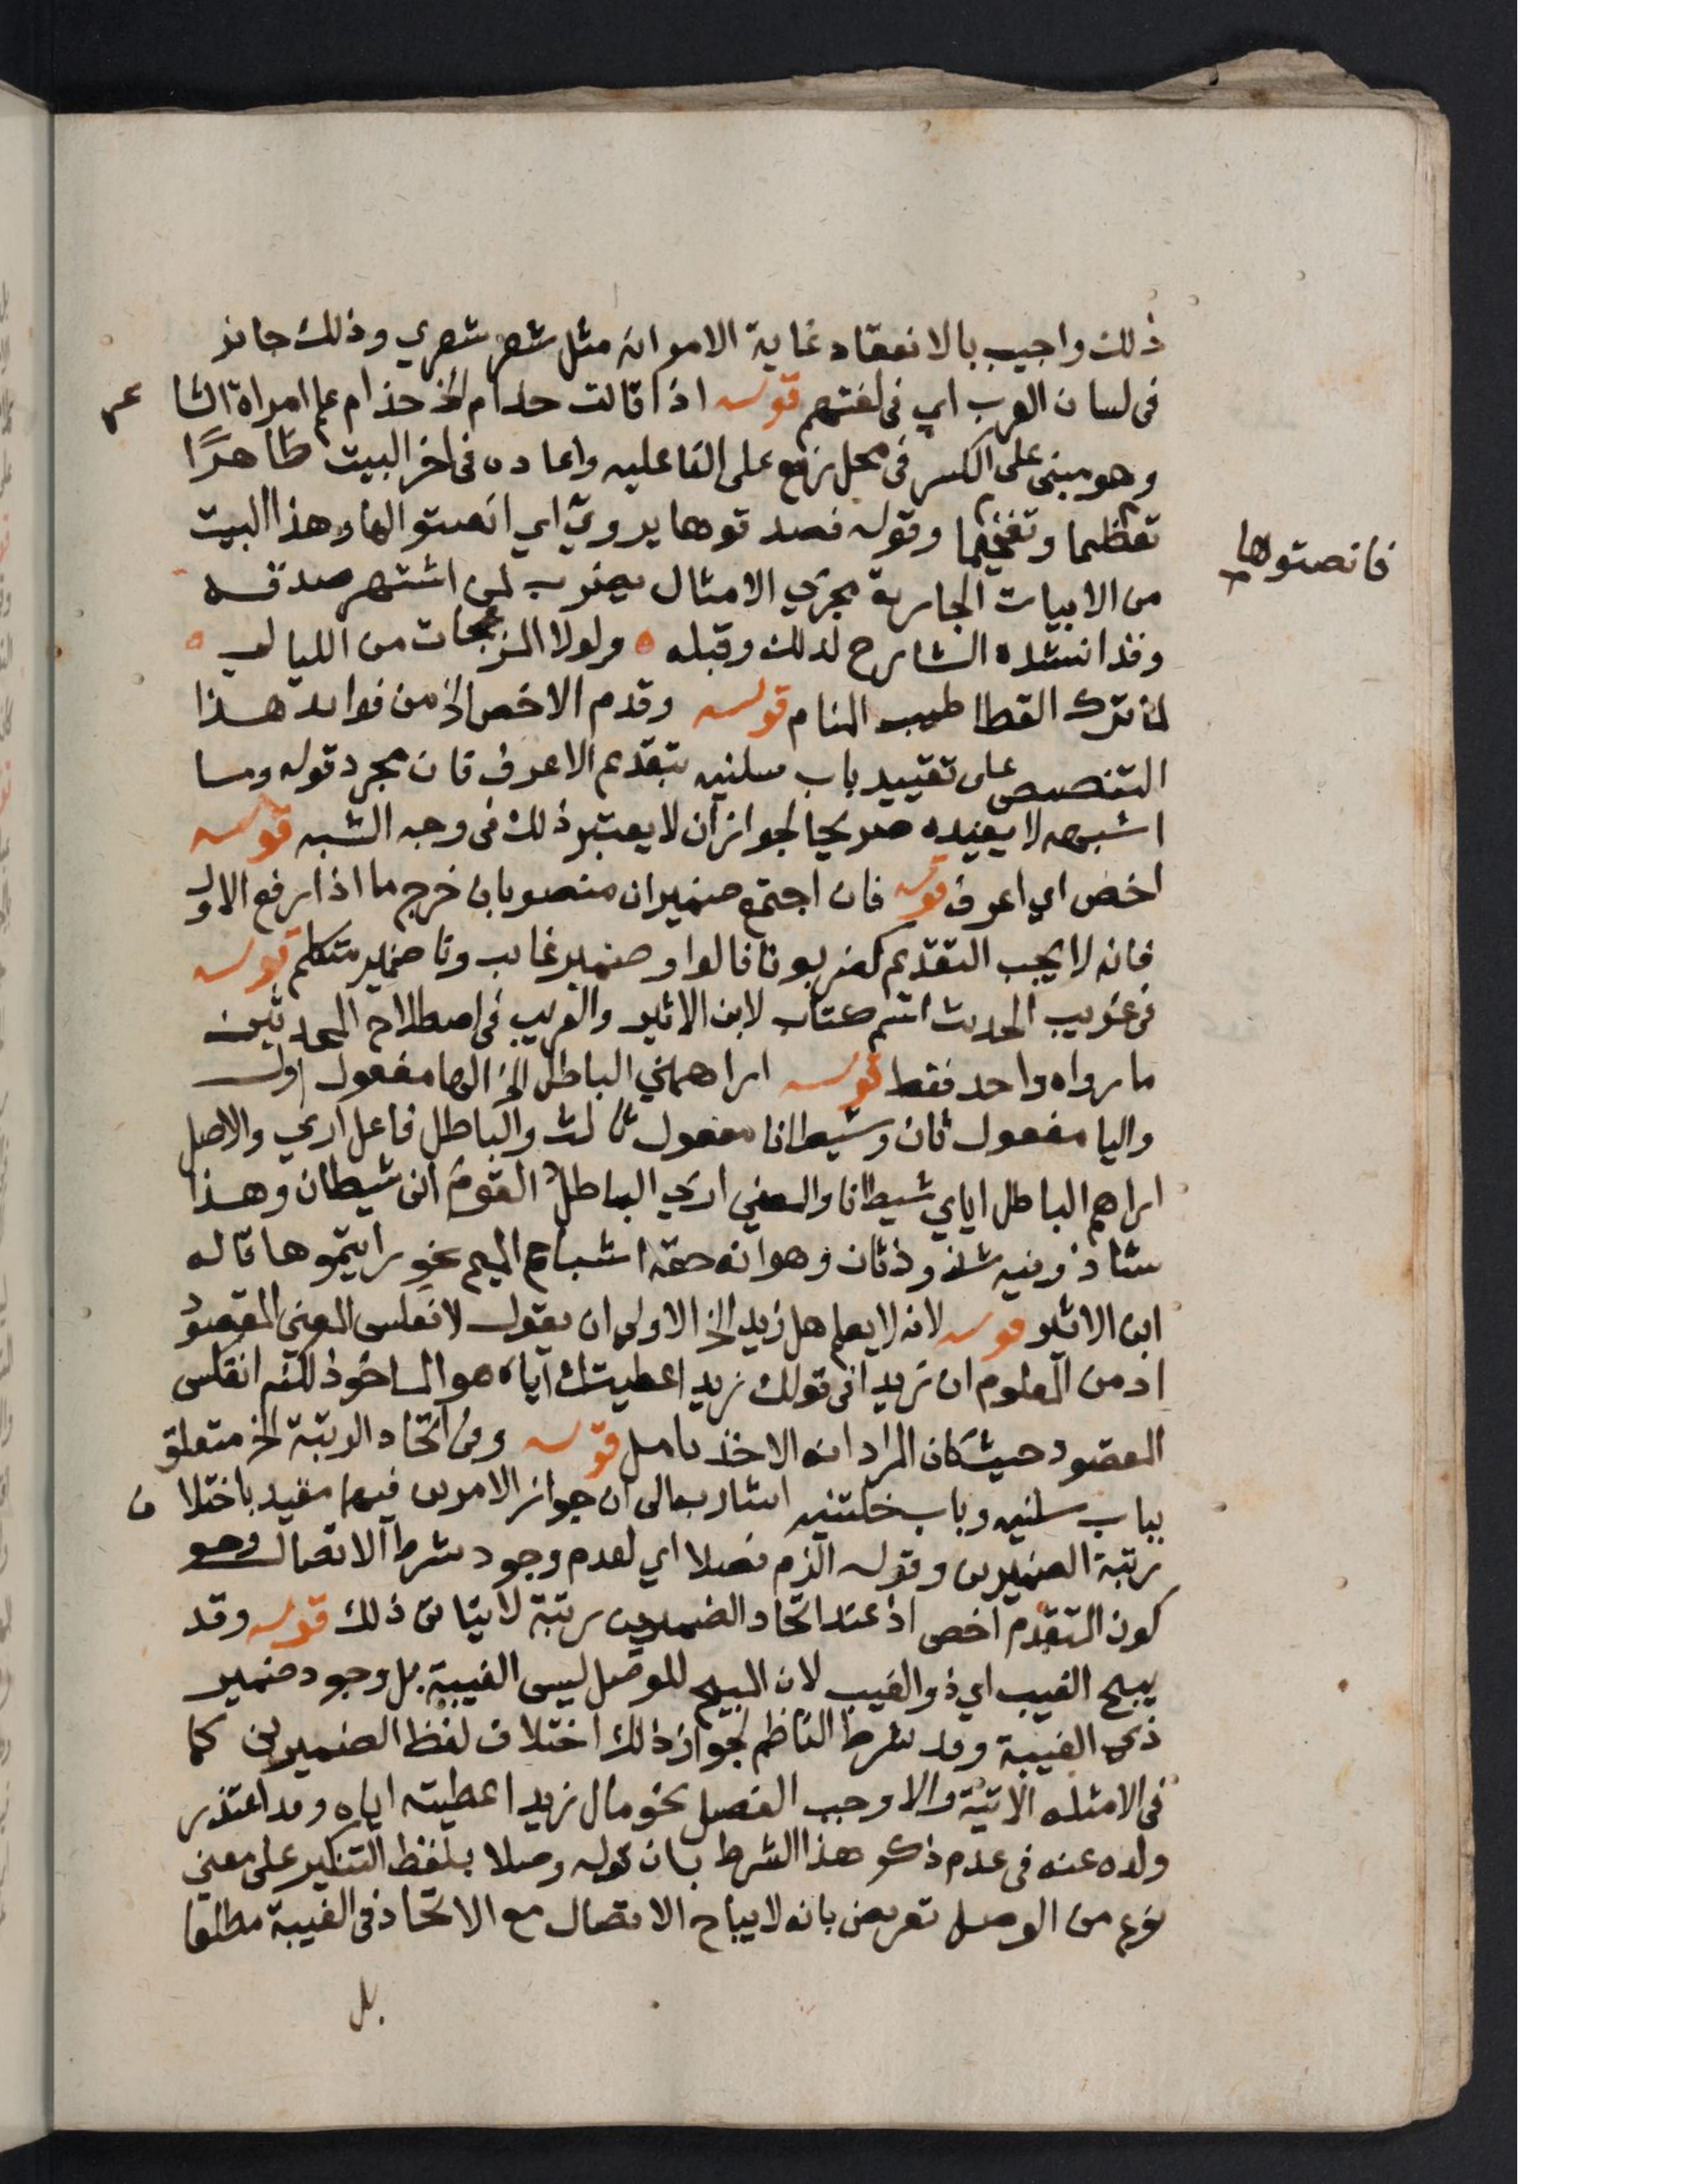 ذلك واجيب بالانعقاد غاية الامر انه مثل شعر شعري وذلك جائز
في لسان العرب اي في لغتهم قوله اذا قالت حذام الخ حذام علم امراة الشا عر
وهو مبني على الكسر في محل رفع على الفاعليه واعاده في اخر البيت ظاهرًا
تعظيما وتفخيما وقوله فصدقوها يروي اي انصتوا لها وهذا البيت
فانصتوها
من الابيات الجارية مجري الامثال يضرب لمن اشتهر صدقه
وقد انشده الشارح لذلك وقبله ولولا المزعجات من الليالي
لما ترك القطا طيب المنام قوله وقدم الاخص الخ من فوايد هذا
التنصيص على تقييد باب سلنيه بتقديم الاعرف فان مجرد قوله وما
اشبهه لا يفيده صريحا لجواز ان لا يعتبر ذلك في وجه الشبه قوله
اخص اي اعرف قوله فان اجتمع ضميران منصوبان خرج ما اذا رفع الاول
فانه لا يجب التقديم كضربونا فالواو ضمير غايب ونا ضمير متكلم قوله
في غريب الحديث اسم كتاب لابن الاثير والغريب في اصطلاح المحدثين
ما رواه واحد فقط قوله اراهمني الباطل الخ الها مفعول اول
واليا مفعول ثان وشيطانا مفعول ثالث والباطل فاعل اري والاصل
اراهم الباطل اياي شيطانا والمعني اري الباطل القوم اني شيطان وهذا
شاذ وفيه شذوذ ثان وهو انه حقه اشباع الميم نحو رايتموها قاله
ابن الاثير قوله لانه لا يعلم هل زيد الخ الاولى ان يقول لانعكس المعني المقصود
اذ من المعلوم ان زيدا في قولك زيد اعطيتك اياه هو الماخوذ لكنه انعكس
المقصود حيث كان المراد انه الاخذ تامل قوله وفي اتحاد الرتبة الخ متعلق
بباب سلنيه وباب خلتنيه اشار به الى ان جواز الامرين فيهما مقيد باختلا ف
رتبة الضميرين وقوله الزم فصلا اي لعدم وجود شرط الاتصال وهو
كون المتقدم اخص اذ عند اتحاد الضميرين رتبة لا يتاتى ذلك قوله وقد
يبيح الغيب اي ذو الغيب لان المبيح للوصل ليس الغيبة بل وجود ضمير
ذي الغيبة وقد شرط الناظم لجواز ذلك اختلاف لفظ الضميرين كما
في الامثله الاتية والا وجب الفصل نحو مال زيد اعطيته اياه وقد اعتذر
ولده عنه في عدم ذكر هذا الشرط بان قوله وصلا بلفظ التنكير على معني
نوع من الوصل تعريض بانه لا يباح الاتصال مع الاتحاد في الغيبة مطلقا
بل